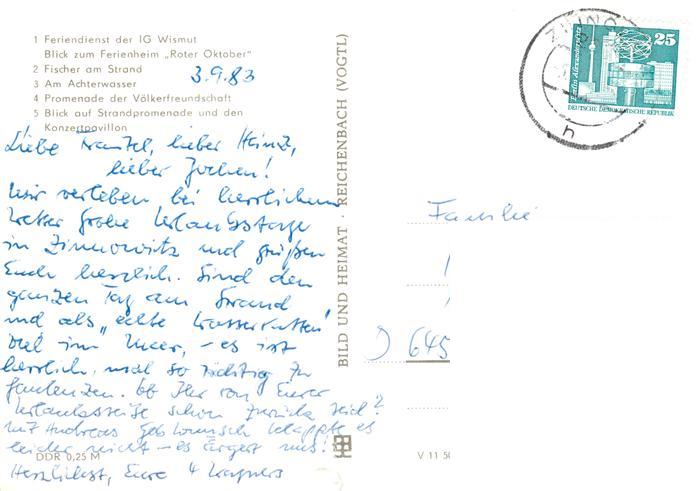 1 Feriendienst der IG Wismut
Blick zum Ferienheim „Roter Oktober"
2 Fischer am Strand
3 Am Achterwasser
4 Promenade der Völkerfreundschaft
5 Blick auf Strandpromenade und den
Konzertpavillon
3.9.83
Liebe Traudel, lieber Heinz,
lieber Jochen!
Wir verleben bei herrlichem
Wetter frohe Urlaubstage
in Zinnowitz und grüßen
Euch herzlich. Sind den
ganzen Tag am Strand
und als „echte Wasserratten"
viel im Meer, – es ist
herrlich, mal so richtig zu
faulenzen. Ob Ihr von Eurer
Urlaubsreise schon zurück seid?
Mit Andreas Geb. wunsch klappte es
leider nicht – es ärgert uns!
Herzlichst, Eure 4 Wagners
DDR 0,25 M
BILD UND HEIMAT · REICHENBACH (VOGTL)
V 11 50
25
Berlin, Alexanderplatz
DEUTSCHE DEMOKRATISCHE REPUBLIK
h
Familie
645